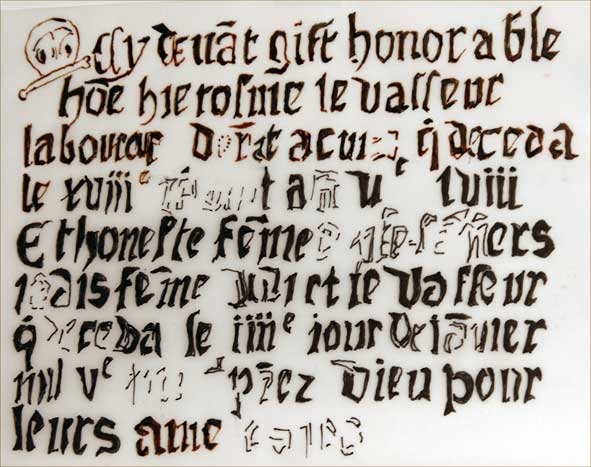 Cy deuãt giſt honorable
hõe hieroſme le vaſſeur
laboureur a q̃ deceda
le xviiiᵉ vᶜ lviii
Et honeſte fẽme
iadis fẽme dudict le vaſſeur
q̃ deceda le iiiiᵉ iour de iãuier
mil vᶜ p̃ez dieu pour
leurs ame